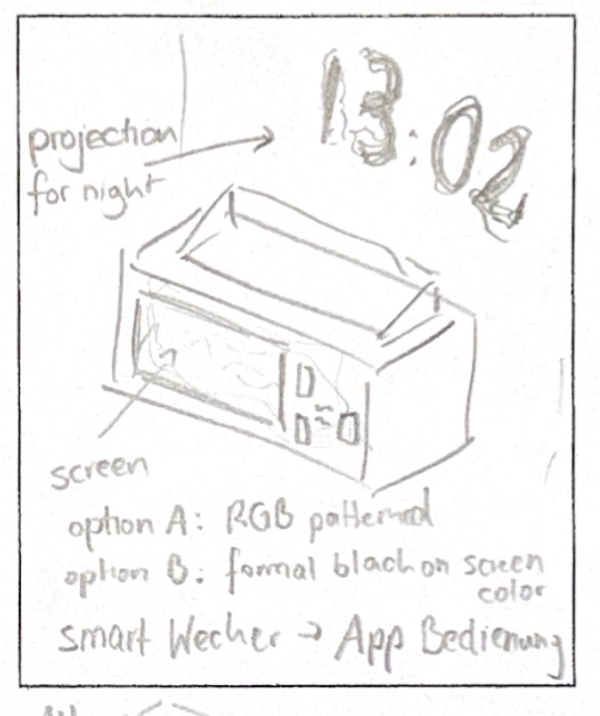 13:02
projection
for night
screen
option A: RGB patterned
option B: formal black on screen
color
smart Wecker → App Bedienung